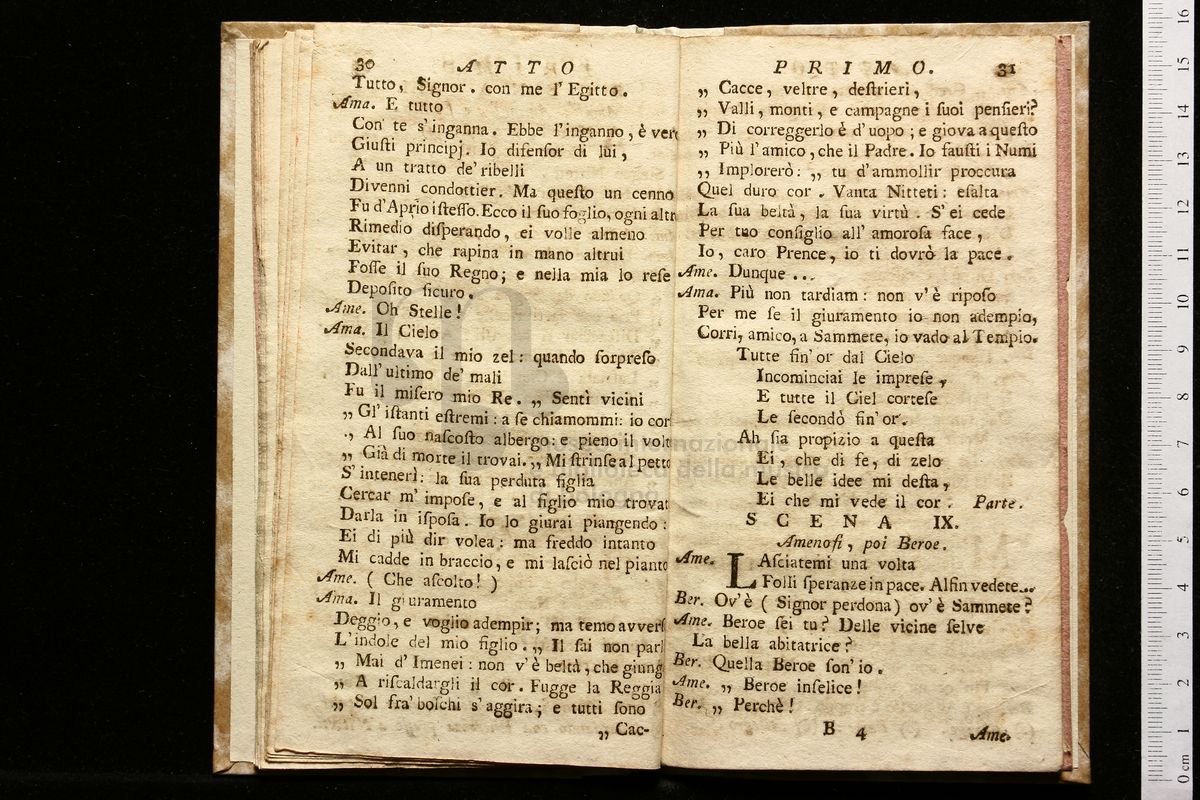 30 ATTO
Tutto, Signor. con me l'Egitto.
Ama. E tutto
Con te s'inganna. Ebbe l'inganno, è vero
Giuſti principj. Io difenſor di lui,
A un tratto de' ribelli
Divenni condottier. Ma queſto un cenno
Fu d'Aprio iſteſſo. Ecco il ſuo foglio, ogni altr
Rimedio diſperando, ei volle almeno
Evitar, che rapina in mano altrui
Foſſe il ſuo Regno; e nella mia lo reſe
Depoſito ſicuro.
Ame. Oh Stelle!
Ama. Il Cielo
Secondava il mio zel: quando ſorpreſo
Dall'ultimo de' mali
Fu il miſero mio Re. „ Sentì vicini
„ Gl'iſtanti eſtremi: a ſe chiamommi: io cor
„ Al ſuo naſcoſto albergo: e pieno il volt
„ Già di morte il trovai. „ Mi ſtrinſe al petto
S'intenerì: la ſua perduta figlia
Cercar m'impoſe, e al figlio mio trovat
Darla in iſpoſa. Io lo giurai piangendo:
Ei di più dir volea: ma freddo intanto
Mi cadde in braccio, e mi laſciò nel pianto
Ame. ( Che aſcolto! )
Ama. Il giuramento
Deggio, e voglio adempir; ma temo avverſ
L'indole del mio figlio. „ Il ſai non parl
„ Mai d'Imenei: non v'è beltà, che giung
„ A riſcaldargli il cor. Fugge la Reggia
„ Sol fra' boſchi s'aggira; e tutti ſono
„ Cac-
PRIMO. 31
„ Cacce, veltre, deſtrieri,
„ Valli, monti, e campagne i ſuoi penſieri?
„ Di correggerlo è d'uopo; e giova a queſto
„ Più l'amico, che il Padre. Io fauſti i Numi
„ Implorerò: „ tu d'ammollir proccura
Quel duro cor. Vanta Nitteti: eſalta
La ſua beltà, la ſua virtù. S'ei cede
Per tuo conſiglio all'amoroſa face,
Io, caro Prence, io ti dovrò la pace.
Ame. Dunque ...
Ama. Più non tardiam: non v'è ripoſo
Per me ſe il giuramento io non adempio,
Corri, amico, a Sammete, io vado al Tempio.
Tutte fin'or dal Cielo
Incominciai le impreſe,
E tutte il Ciel corteſe
Le ſecondò fin'or.
Ah ſia propizio a queſta
Ei, che di fe, di zelo
Le belle idee mi deſta,
Ei che mi vede il cor. Parte.
SCENA IX.
Amenofi, poi Beroe.
Ame. LAſciatemi una volta
Folli ſperanze in pace. Alfin vedete...
Ber. Ov'è ( Signor perdona ) ov'è Sammete?
Ame. Beroe ſei tu? Delle vicine ſelve
La bella abitatrice?
Ber. Quella Beroe ſon'io.
Ame. „ Beroe infelice!
Ber. „ Perchè!
B 4 Ame.